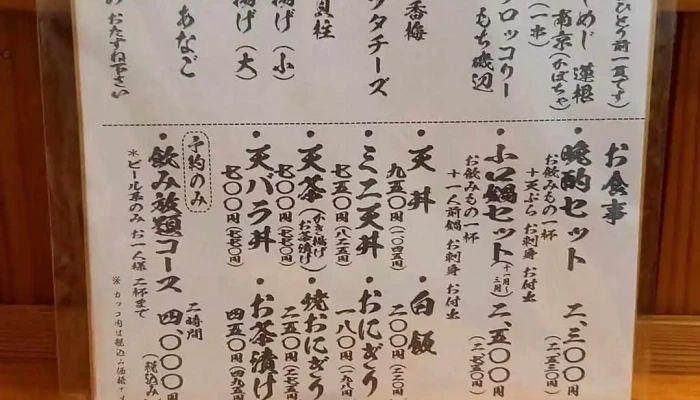 ひとり前一貫です)
しめじ 蓮根
南京(かぼちゃ)
(一串)
ブロッコリー
もち磯辺
香梅
ッタチーズ
貝柱
揚げ(小)
揚げ(大)
あなご
おたずね下さい
お食事
・晩酌セット 二、三〇〇円
(二、五三〇円)
お飲みもの一杯
十天ぷら お刺身 お付出
・小鍋セット(十一月〜三月) 二、五〇〇円
(二、七五〇円)
お飲みもの一杯
十一人前鍋 お刺身 お付出
・天丼
九五〇円(一〇四五円)
・白飯
二〇〇円(二二〇円)
・ミニ天丼
七五〇円(八二五円)
・おにぎり
一八〇円(一九八円)
・天茶(かき揚げお茶漬け)
七〇〇円(七七〇円)
・焼おにぎり
二五〇円(二七五円)
・天バラ丼
七〇〇円(七七〇円)
・お茶漬け
四五〇円(四九五円)
予約のみ
・飲み放題コース 四、〇〇〇円
(税込み)
二時間
*ビール系のみ お一人様 二杯まで
※カッコ内は税込み価格